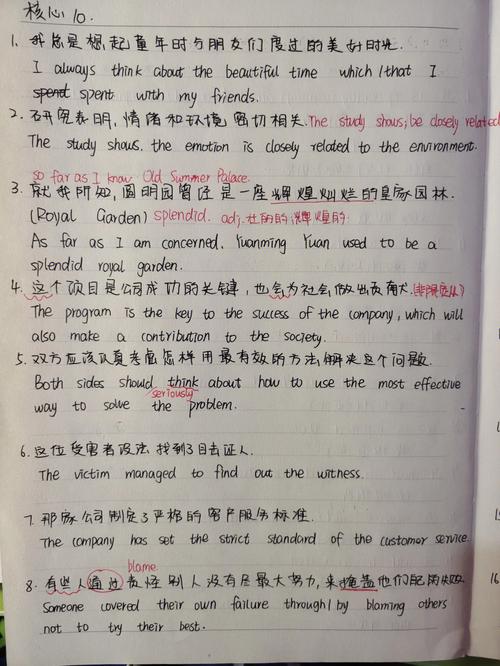 核心10.
1. 我总是想起童年时与朋友们度过的美好时光.
I always think about the beautiful time which/that I
spent spent with my friends.
2. 研究表明,情绪和环境密切相关. The study shows; be closely related
The study shows. the emotion is closely related to the environment.
so far as I know Old Summer Palace.
3. 就我所知,圆明园曾经是一座辉煌灿烂的皇家园林.
(Royal Garden) splendid. adj. 壮丽的;辉煌的
As far as I am concerned. Yuanming Yuan used to be a
splendid royal garden.
4. 这个项目是公司成功的关键,也会为社会做出贡献.(非限定从)
The program is the key to the success of the company, which will
also make a contribution to the society.
5. 双方应该认真考虑怎样用最有效的方法解决这个问题.
Both sides should think about how to use the most effective
seriously
way to solve the problem.
6. 这位受害者设法找到了目击证人.
The victim managed to find out the witness.
7. 那家公司制定了严格的客户服务标准.
The company has set the strict standard of the customer service.
blame.
8. 有些人通过责怪别人没有尽最大努力,来掩盖他们自己的失败.
Someone covered their own failure through/by blaming others
not to try their best.
15
16